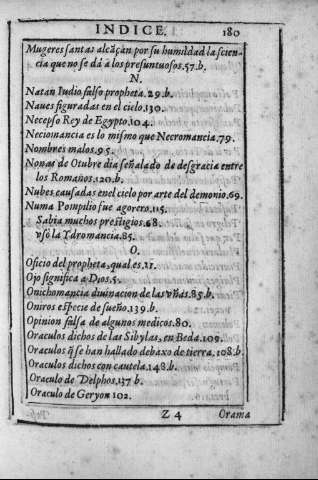 INDICE. 180
Mugeres santas alcāçan por su humildad la scien-
cia que no se dá á los presuntuosos. 57. b.
N.
Natan Iudio, falso propheta. 29. b.
Naues figuradas en el cielo. 130.
Necepso Rey de Egypto. 104.
Neciomancia es lo mismo que Necromancia. 79.
Nombres malos. 95.
Nonas de Otubre dia señalado de desgracia entre
los Romanos. 120. b.
Nubes causadas enel cielo por arte del demonio. 69.
Numa Pompilio fue agorero. 115.
Sabia muchos prestigios. 68.
vsó la Ydromancia. 85.
O.
Oficio del propheta, qual es. 11.
Ojo significa a Dios. 5.
Onichomancia diuinacion de las vñas. 85. b.
Oniros especie de sueño. 139. b.
Opinion falsa de algunos medicos. 80.
Oraculos dichos de las Sibylas, en Beda. 109.
Oraculos q̃ se han hallado debaxo de tierra. 108. b.
Oraculos dichos con cautela. 148. b.
Oraculo de Delphos. 137. b.
Oraculo de Geryon 102.
Z 4 Orama